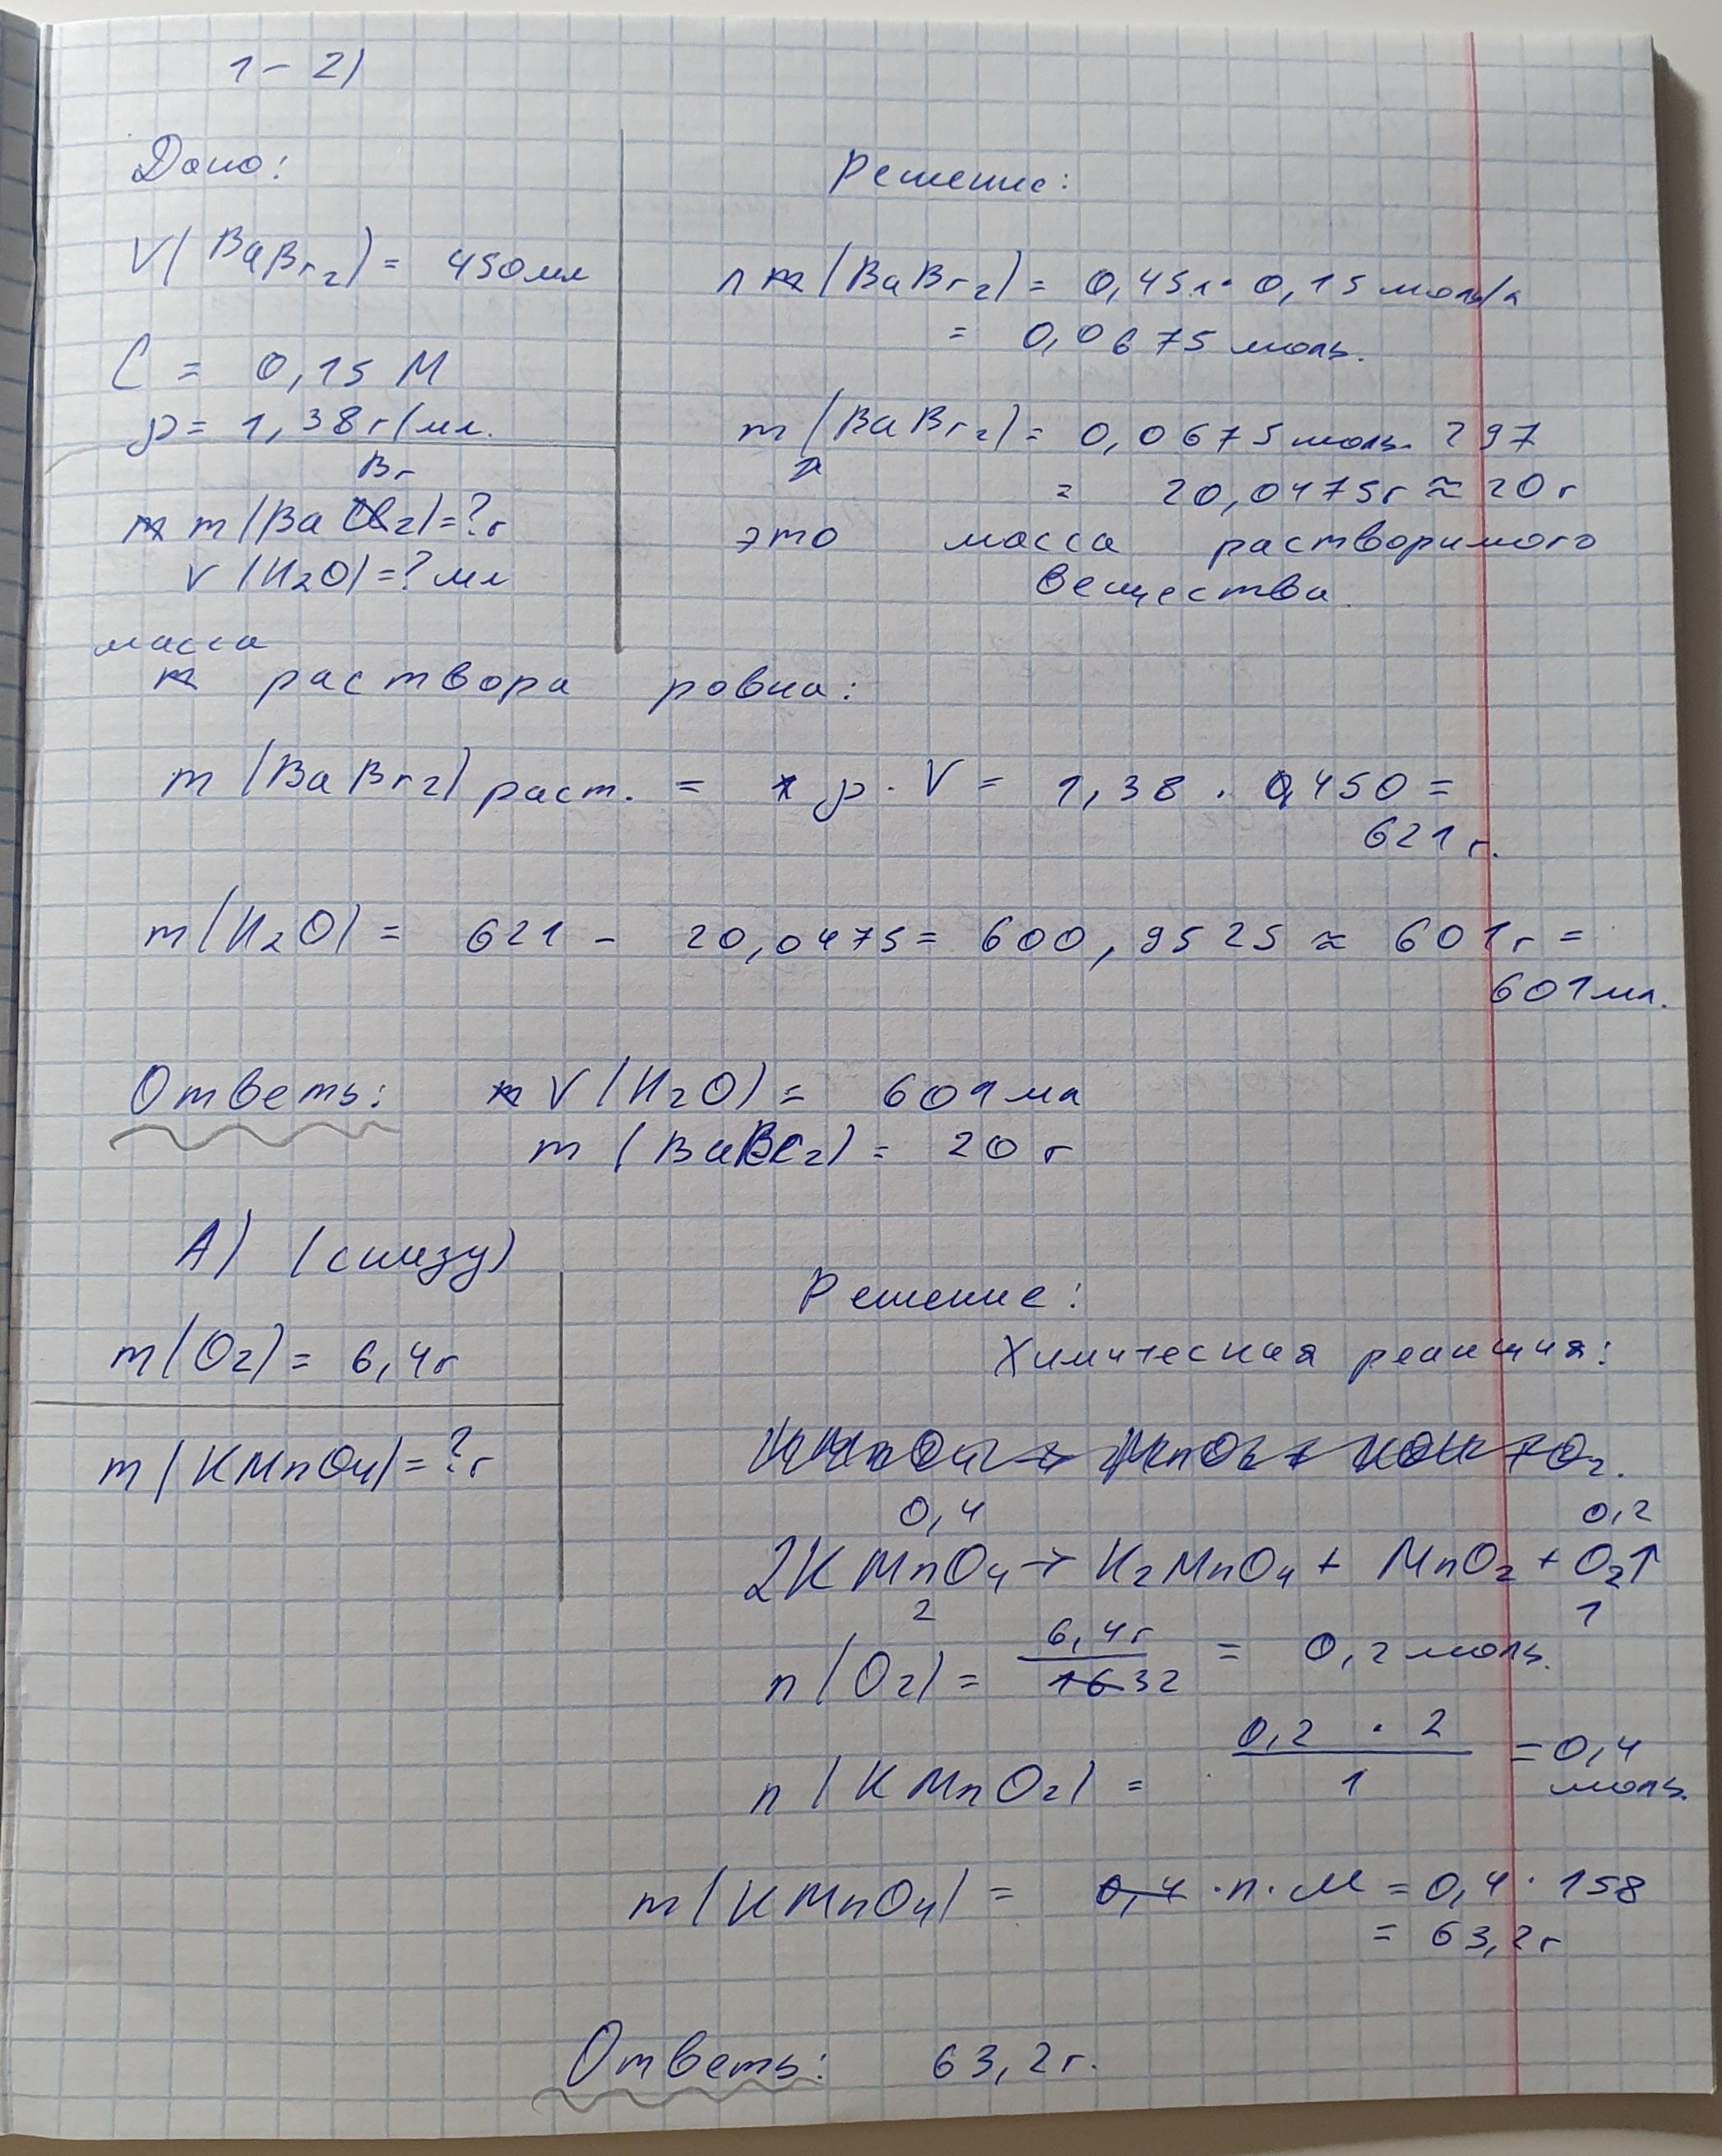 1 - 2)
Дано:
V(BaBr2) = 450 мл
C = 0,15 M
ρ = 1,38 г/мл.
Br
m (Ba 2) = ? г
V (H2O) = ? мл
Решение:
n (BaBr2) = 0,45 л · 0,15 моль/л
= 0,0675 моль.
m (BaBr2) = 0,0675 моль · 297
= 20,0475 г ≈ 20 г
это масса растворимого
вещества
масса
раствора ровна:
m (BaBr2) раст. = ρ · V = 1,38 · 450 =
621 г.
m(H2O) = 621 - 20,0475 = 600,9525 ≈ 601 г =
601 мл.
Ответь: V (H2O) = 601 мл
m (BaBr2) = 20 г
А) (снизу)
m(O2) = 6,4 г
m(KMnO4) = ? г
Решение:
Химическая реакция:
0,4 0,2
2KMnO4 → K2MnO4 + MnO2 + O2↑
2 1
n(O2) = 6,4 г / 32 = 0,2 моль.
n(KMnO2) = 0,2 · 2 / 1 = 0,4 моль.
m(KMnO4) = · n · M = 0,4 · 158
= 63,2 г
Ответь: 63,2 г.